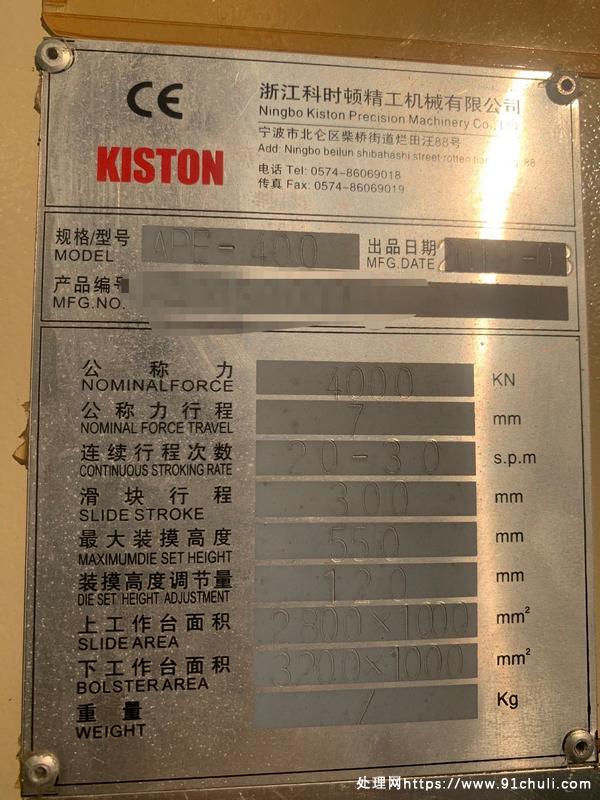 CE
浙江科时顿精工机械有限公司
Ningbo Kiston Precision Machinery Co., Ltd
宁波市北仑区柴桥街道烂田汪88号
Add: Ningbo beilun shibahashi street rotten 88
KISTON
电话 Tel: 0574-86069018
传真 Fax: 0574-86069019
规格/型号 APE-400 出品日期
MODEL MFG.DATE
产品编号
MFG.NO.
公称力 4000 KN
NOMINALFORCE
公称力行程 7 mm
NOMINAL FORCE TRAVEL
连续行程次数 20-30 s.p.m
CONTINUOUS STROKING RATE
滑块行程 300 mm
SLIDE STROKE
最大装摸高度 550 mm
MAXIMUMDIE SET HEIGHT
装摸高度调节量 120 mm
DIE SET HEIGHT ADJUSTMENT
上工作台面积 2800×1000 mm²
SLIDEAREA
下工作台面积 3200×1000 mm²
BOLSTERAREA
重量 / Kg
WEIGHT
处理网https://www.91chuli.com